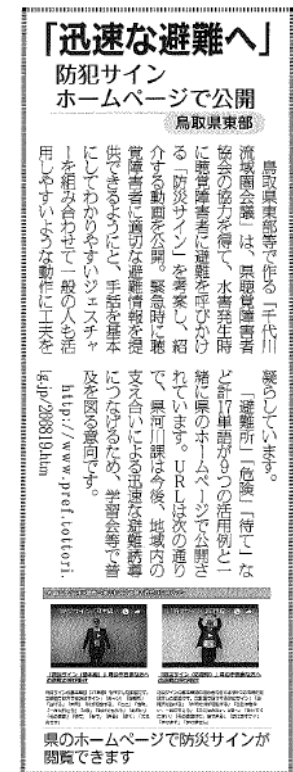 「迅速な避難へ」
防犯サイン
ホームページで公開
鳥取県東部
鳥取県東部等で作る「千代川
流域圏会議」は、県聴覚障害者
協会の協力を得て、水害発生時
に聴覚障害者に避難を呼びかけ
る「防災サイン」を考案し、紹
介する動画を公開。緊急時に聴
覚障害者に適切な避難情報を提
供できるようにと、手話を基本
にしてわかりやすいジェスチャ
ーを組み合わせて一般の人も活
用しやすいような動作に工夫を
凝らしています。
「避難所」「危険」「待て」な
ど計17単語が9つの活用例と一
緒に県のホームページで公開さ
れています。URLは次の通り
で、県河川課は今後、地域内の
支え合いによる迅速な避難誘導
につなげるため、学習会等で普
及を図る意向です。
http://www.pref.tottori.
lg.jp/269819.htm
県のホームページで防災サインが
閲覧できます